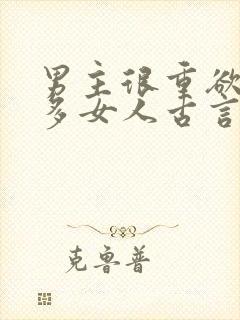 男主很重欲
多女人古言
克鲁普